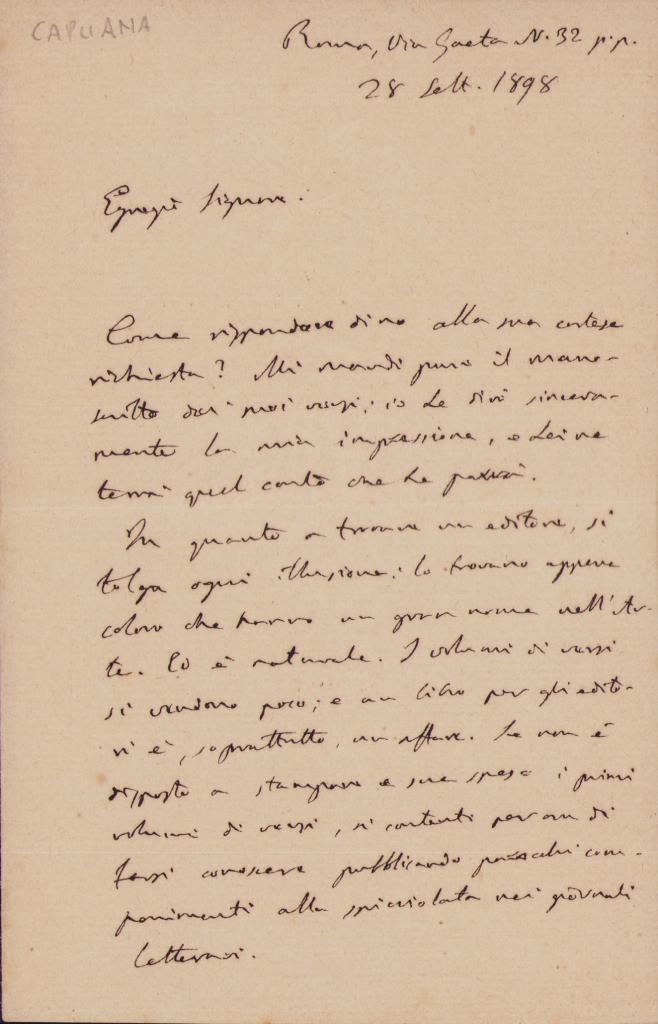 CAPUANA
Roma, Via Gaeta N. 32 p.p.
28 Sett. 1898
Egregio Signore.
Come rispondere di no alla sua cortese
richiesta? Mi mandi pure il mano-
scritto dei suoi versi; io Le dirò sincera-
mente la mia impressione, e Lei ne
terrà quel conto che Le parrà.
In quanto a trovare un editore, si
tolga ogni illusione; lo trovano appena
coloro che hanno un gran nome nell'Ar-
te. Ed è naturale. I volumi di versi
si vendono poco; e un libro per gli edito-
ri è, soprattutto, un affare. Se non è
disposto a stampare a sue spese i primi
volumi di versi, si contenti per ora di
farsi conoscere pubblicando parecchi com-
ponimenti alla spicciolata nei giornali
letterari.